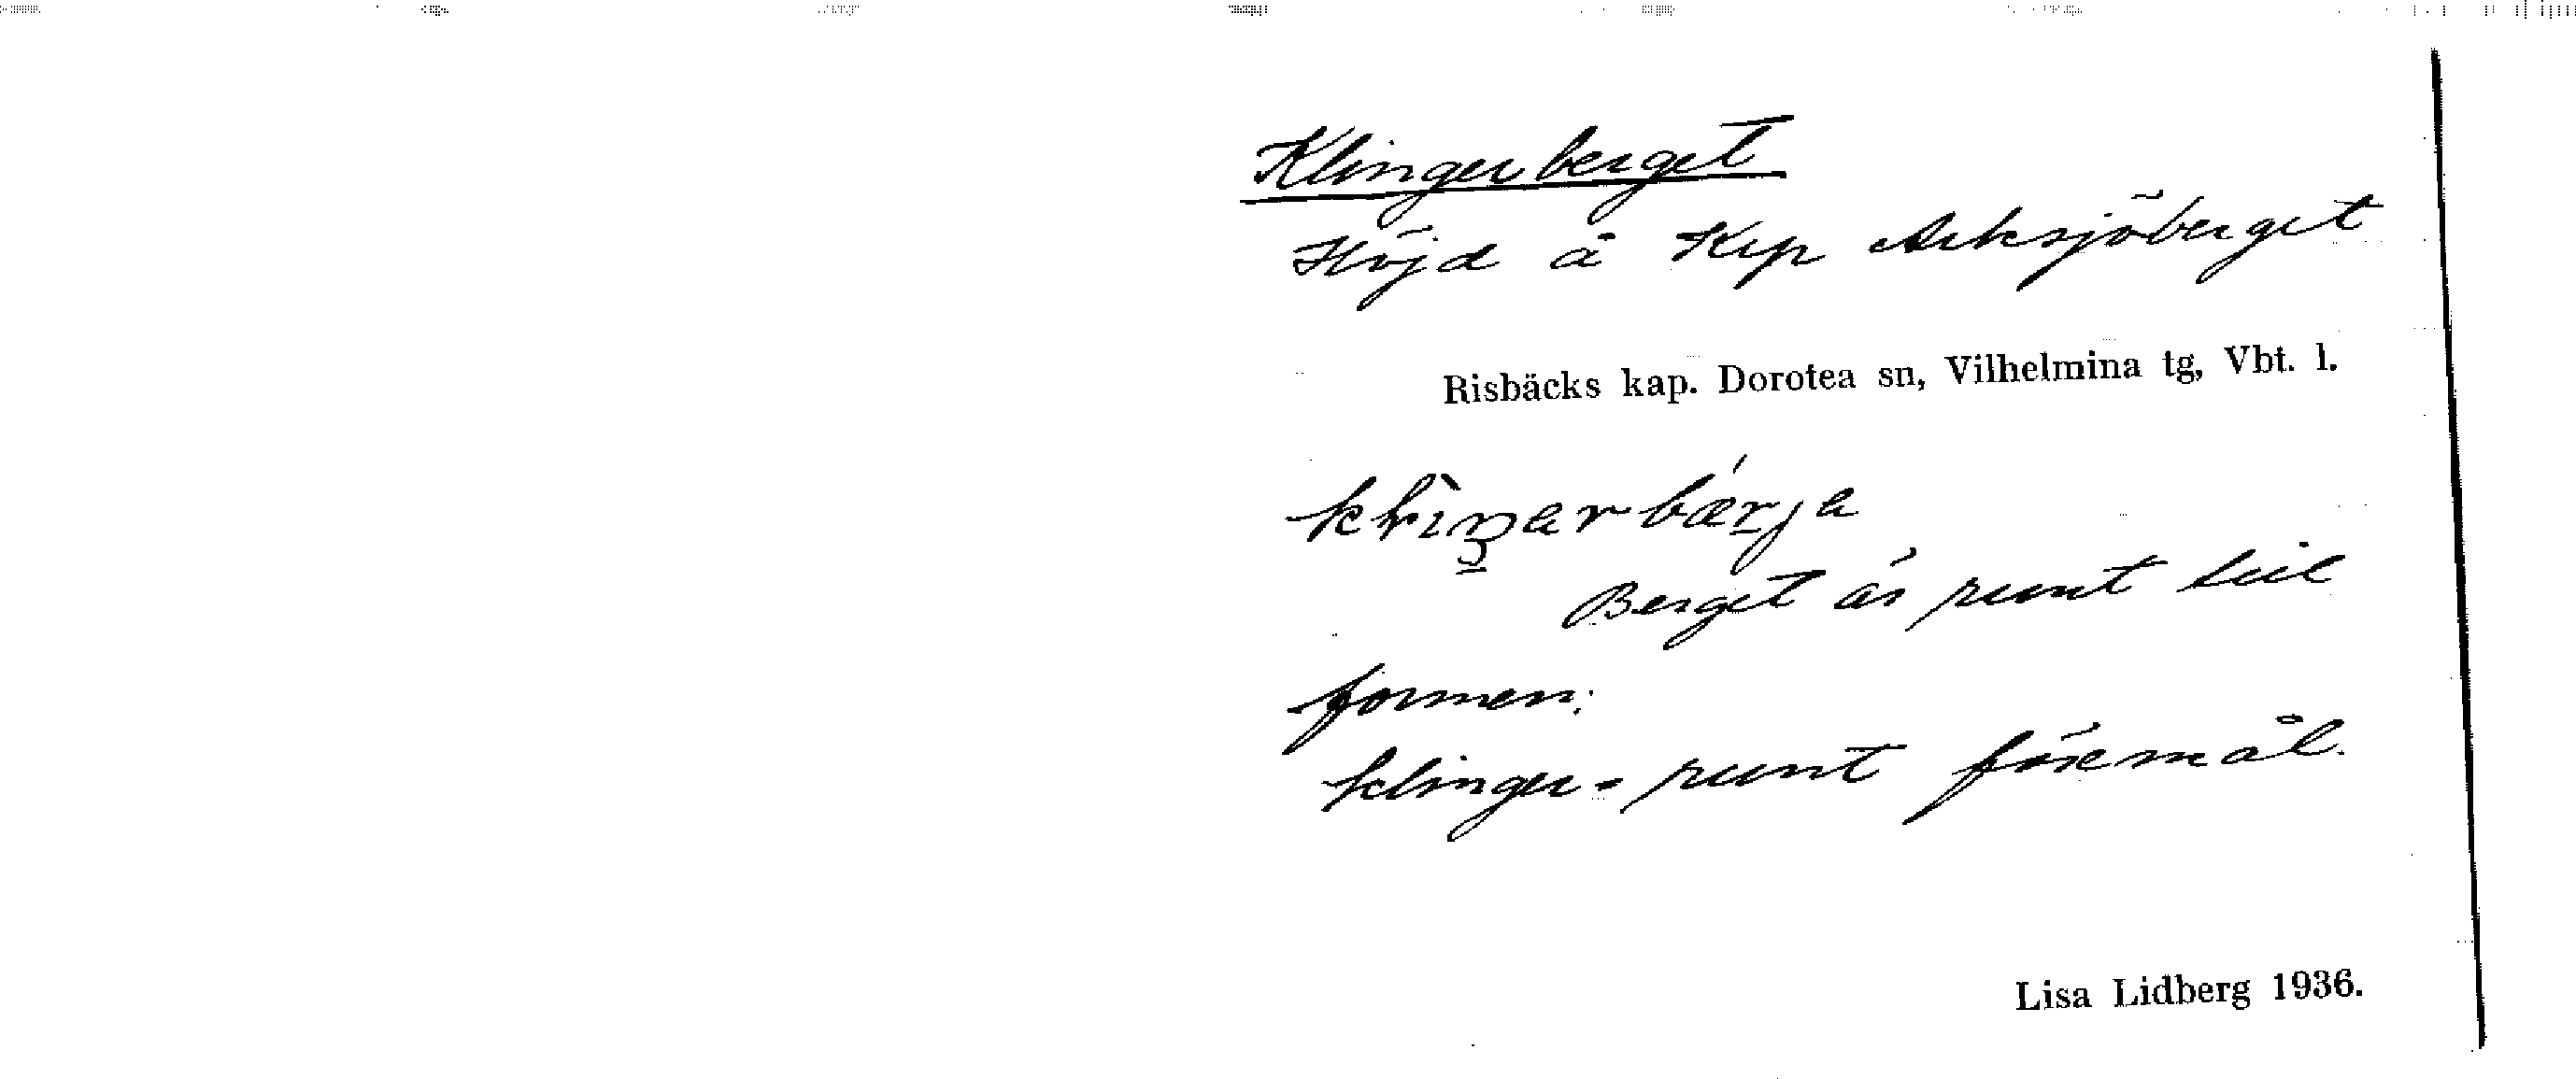 Klingerberget
Höjd å Krp Arksjöberget
Risbäcks kap. Dorotea sn, Vilhelmina tg, Vbt. l.
Berget är runt till
formen.
klinger = runt föremål.
Lisa Lidberg 1936.